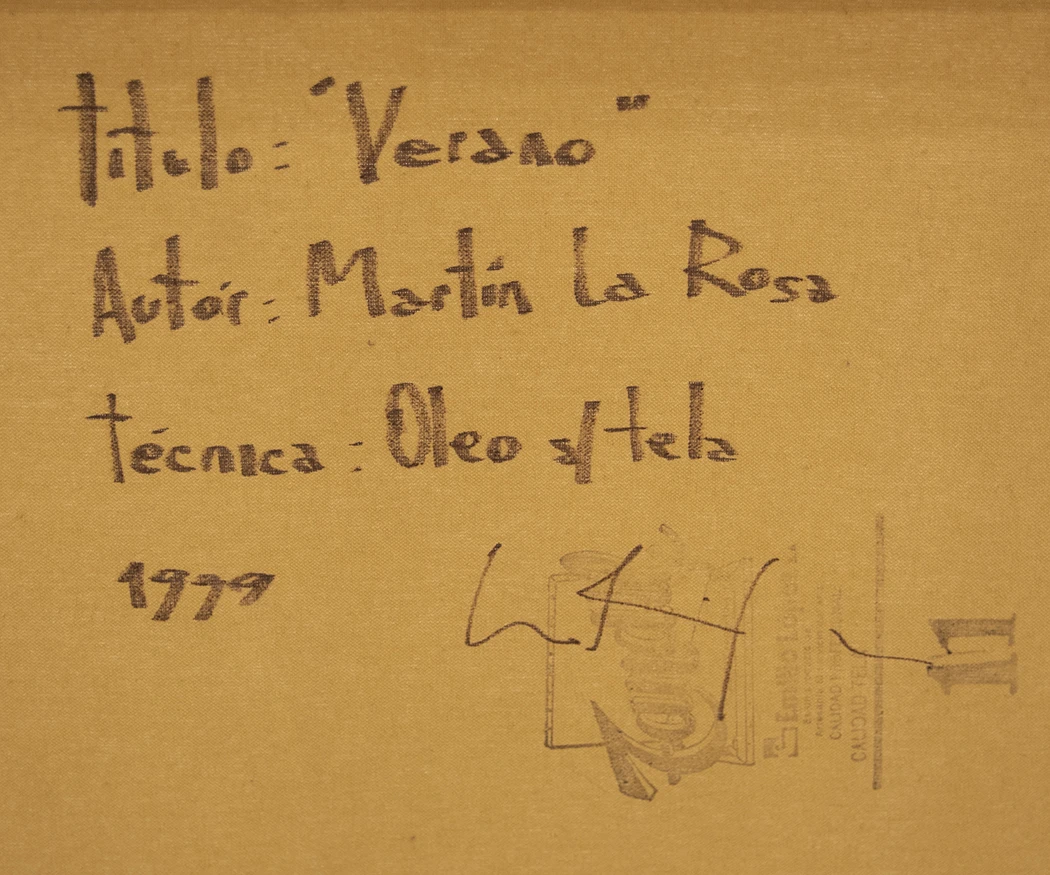 Titulo: "Verano"
Autór: Martín La Rosa
técnica: Oleo s/ tela
1999
11
CALIDAD
CALIDAD